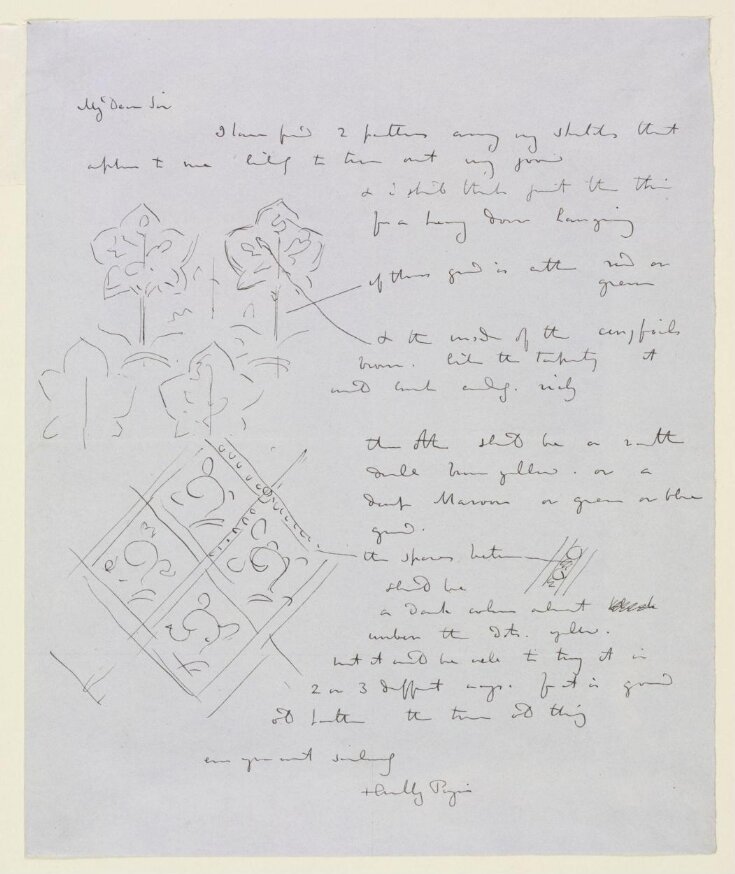 My Dear Sir
I have found 2 patterns among my sketches that
appear to me likely to turn out very good
& I should think just the thing
for a heavy Door hanging
of these ground is either red or
green
& the inside of the cinqfoils
brown. like the tapestry it
would look rich
the other should be on
dull brown yellow. or a
deep Maroon or green or blue
ground.
the spaces between
should be
a Dark colour about
the Dots. yellow.
but it would be well to try it in
2 or 3 different ways. for it is good
old pattern the true old thing
ever yours most sincerely
+AWelby Pugin